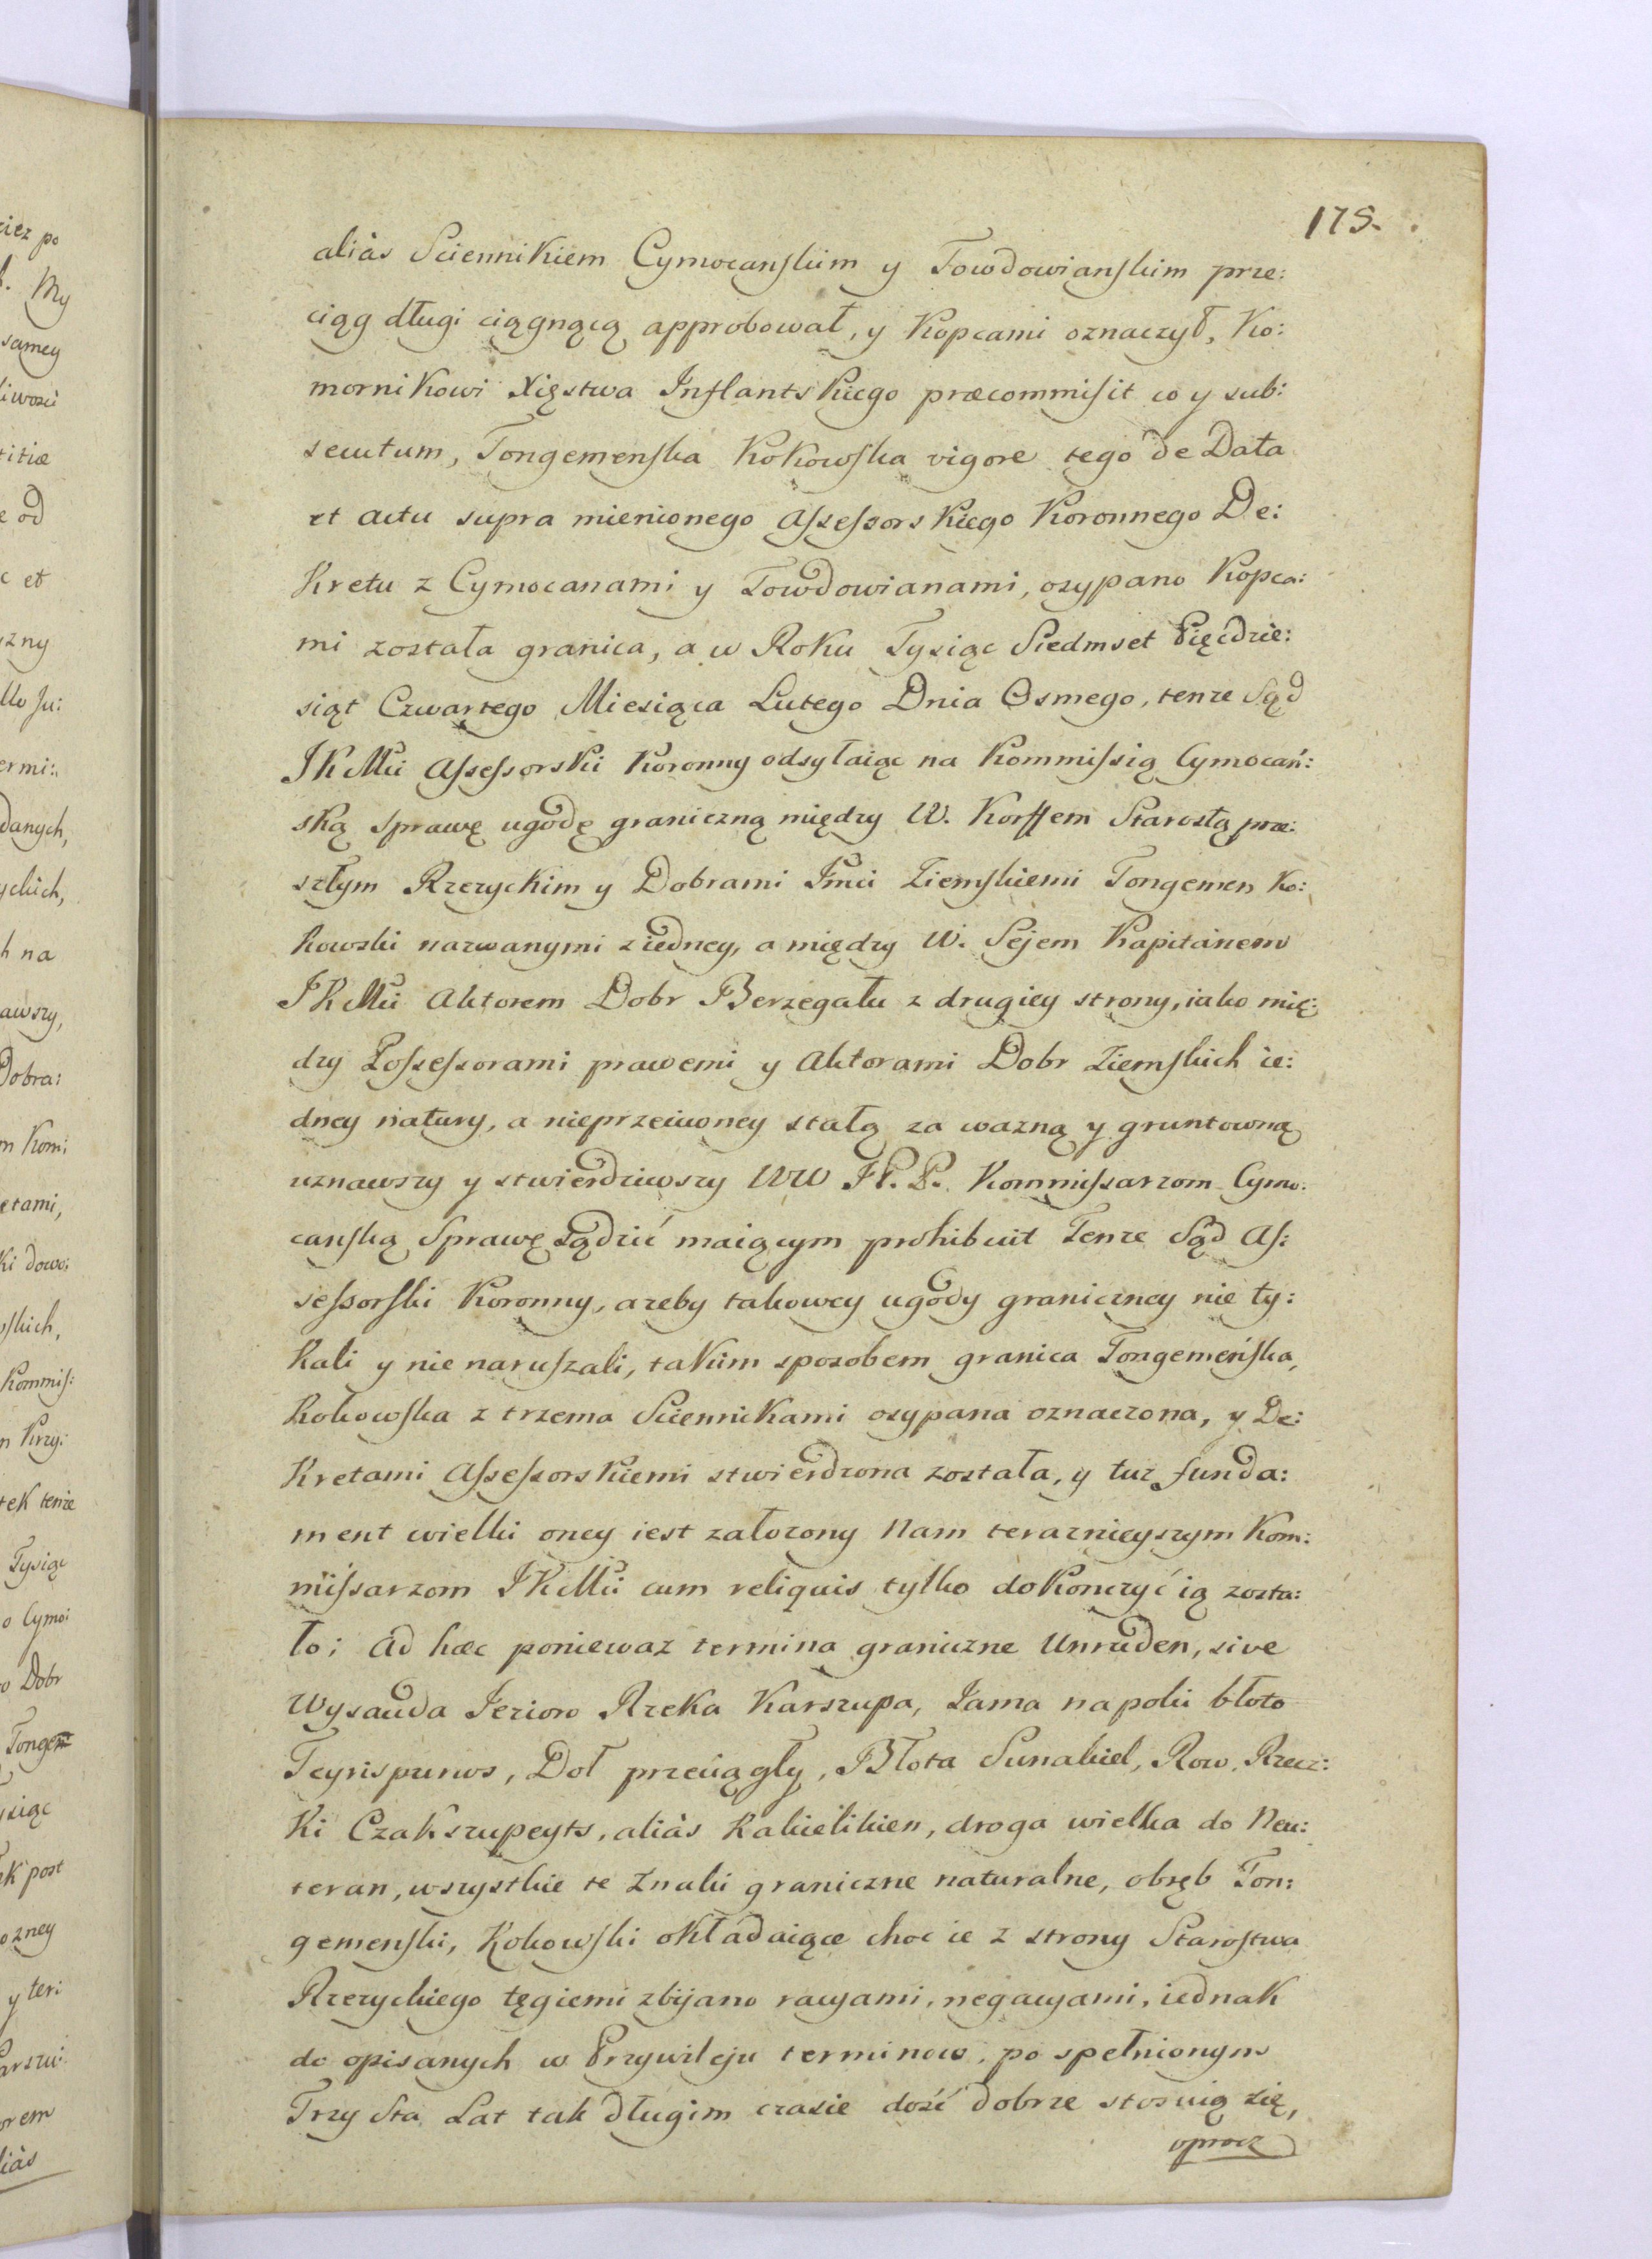 175.
aliàs Sciennikiem Cymocanskim y Towdowianskim prze:
ciąg długi ciągnącą approbował, y Kopcami oznaczył, Ko:
mornikowi Xięstwa Inflantskiego præcommisit co y sub:
secutum, Tongemenska Kokowska vigore tego de Data
et actu supra mienionego Assessorskiego Koronnego De:
Kretu z Cymocanami y Towdowianami, osypano Kopca:
mi została granica, a w Roku Tysiąc Siedmset Pięćdzie:
siąt Czwartego Miesiąca Lutego Dnia Osmego, tenze Sąd
JKMci Assessorski Koronny odsyłaiąc na Kommissią Cymocań:
ską Sprawę ugodę graniczną między W. Korffem Starostą prze:
szłym Rzezyckim y Dobrami Jmci Ziemskiemi Tongemen Ko:
kowski nazwanymi z iedney, a między W. Sejem Kapitanem
JKMci Aktorem Dobr Berzegału z drugiey strony, iako mię:
dzy Possessorami prawemi y Aktorami Dobr Ziemskich ie:
dney natury, a nieprzeciwney stałą za wazną y gruntowną
uznawszy y stwierdziwszy WW JP.P. Kommissarzom Cymo:
canską Sprawę Sądzić maiącym prohibuit Tenze Sąd As:
sessorski Koronny, azeby takowey ugody graniczney nie ty:
kali y nie naruszali, takim sposobem granica Tongemeńska,
Kokowska z trzema Sciennikami osypana oznaczona, y De:
Kretami Assessorskiemi stwierdzona została, y tuz funda:
ment wielki oney iest załozony Nam teraznieyszym Kom:
missarzom JKMci cum reliquis tylko dokonczyć ią zosta:
ło; Ad hæc poniewaz termina graniczne Unruden, sive
Wysauda Jezioro Rzeka Karszupa, Jama na polu błoto
Teyrispurws, Doł przeciągły, Błota Sunakiel, Row, Rzecz:
Ki Czakszupeyts, aliàs Kakielikien, droga wielka do Neu:
teran, wszystkie te Znaki graniczne naturalne, obręb Ton:
gemenski, Kokowski okładaiące choc ie z strony Starostwa
Rzezyckiego tęgiemi zbijano racyami, negacyami, iednak
do opisanych w Przywileju terminow, po spełnionym
Trzy Sta Lat tak długim czasie dość dobrze stosuią się,
oprocz